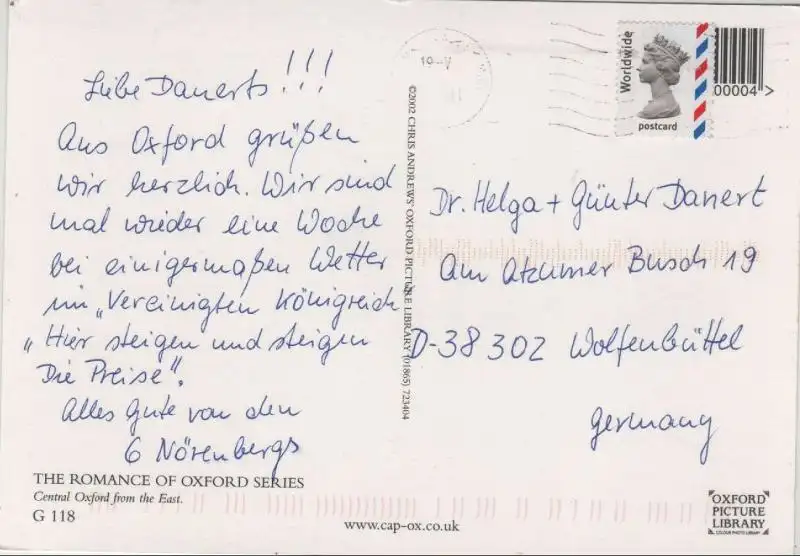 Liebe Danerts!!!
Aus Oxford grüßen
wir herzlich. Wir sind
mal wieder eine Woche
bei einigermaßen Wetter
im „Vereinigten Königreich
„Hier steigen und steigen
Die Preise".
Alles Gute von den
6 Nörenbergs
THE ROMANCE OF OXFORD SERIES
Central Oxford from the East.
G 118
©2002 CHRIS ANDREWS' OXFORD PICTURE LIBRARY (01865) 723404
www.cap-ox.co.uk
Worldwide
postcard
00004>
Dr. Helga + Günter Danert
Am Atzumer Busch 19
D-38302 Wolfenbüttel
Germany
OXFORD
PICTURE
LIBRARY
COLOUR PHOTO LIBRARY